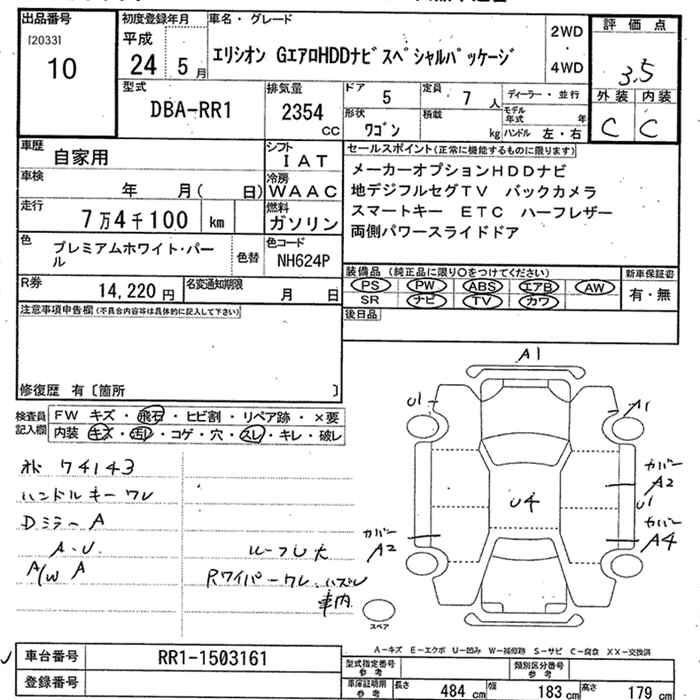 出品番号
[2033]
10
初度登録年月
平成
24 5 月
車名・グレード
エリシオン GエアロHDDナビスペシャルパッケージ
2WD
・
4WD
評価点
3.5
外装 内装
C C
型式
DBA-RR1
排気量
2354
CC
ドア 5
定員 7 人
ディーラー・並行
モデル年式 年
形状 ワゴン
積載 kg
ハンドル 左・右
車歴
自家用
シフト
IAT
車検 年 月( 日)
冷房
WAAC
走行
7万4千100 km
燃料
ガソリン
色
プレミアムホワイト・パール
色替
色コード
NH624P
R券
14,220 円
名変通知期限
月 日
セールスポイント(正常に機能するものに限ります)
メーカーオプションHDDナビ
地デジフルセグTV バックカメラ
スマートキー ETC ハーフレザー
両側パワースライドドア
装備品(純正品に限り○をつけてください)
PS PW ABS エアB AW
SR ナビ TV カワ
新車保証書
有・無
後日品
注意事項申告欄(不具合内容等は具体的に記入して下さい)
修復歴 有〔箇所 〕
検査員
記入欄
FW キズ・飛石・ヒビ割・リペア跡・×要
内装 キズ・汚レ・コゲ・穴・スレ・キレ・破レ
74143
ハンドルキーワレ
Dミラー A
A・U
A/W A
ルーフU大
Rワイパーワレ、ハズレ
車内
A1
U1
A1
カバー
A2
U1
カバー
A4
U4
カバー
A2
スペア
A-キズ E-エクボ U-凹み W-補修跡 S-サビ C-腐食 XX-交換済
車台番号
RR1-1503161
登録番号
型式指定番号
参考
類別区分番号
参考
車庫証明用
参考
長さ 484 cm
幅 183 cm
高さ 179 cm